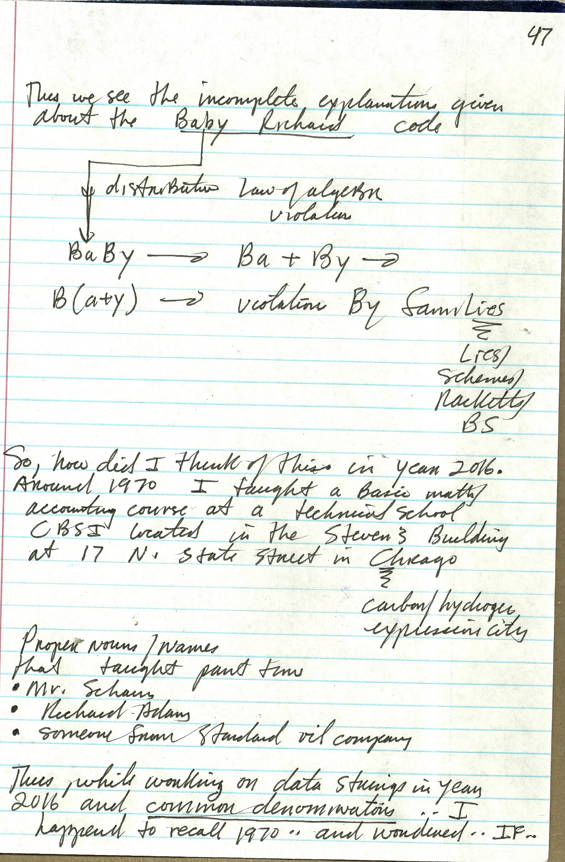 47
Thus we see the incomplete explanations given
about the Baby Richard code
distributive Law of algebra
violation
BaBy → Ba + By →
B(a+y) → violation By FamiLies
Lies/
Schemes/
Racketts/
BS
So, how did I think of this in year 2016.
Around 1970 I taught a Basic math/
accounting course at a technical school
CBSI located in the Steven's Building
at 17 N. State Street in Chicago
carbon/hydrogen
expression city
Proper nouns/names
that taught part time
• Mr. Scham
• Richard Adams
• someone from Standard oil company
Thus while working on data strings in year
2016 and common denominators .. I
happend to recall 1970 .. and wondered .. IF..